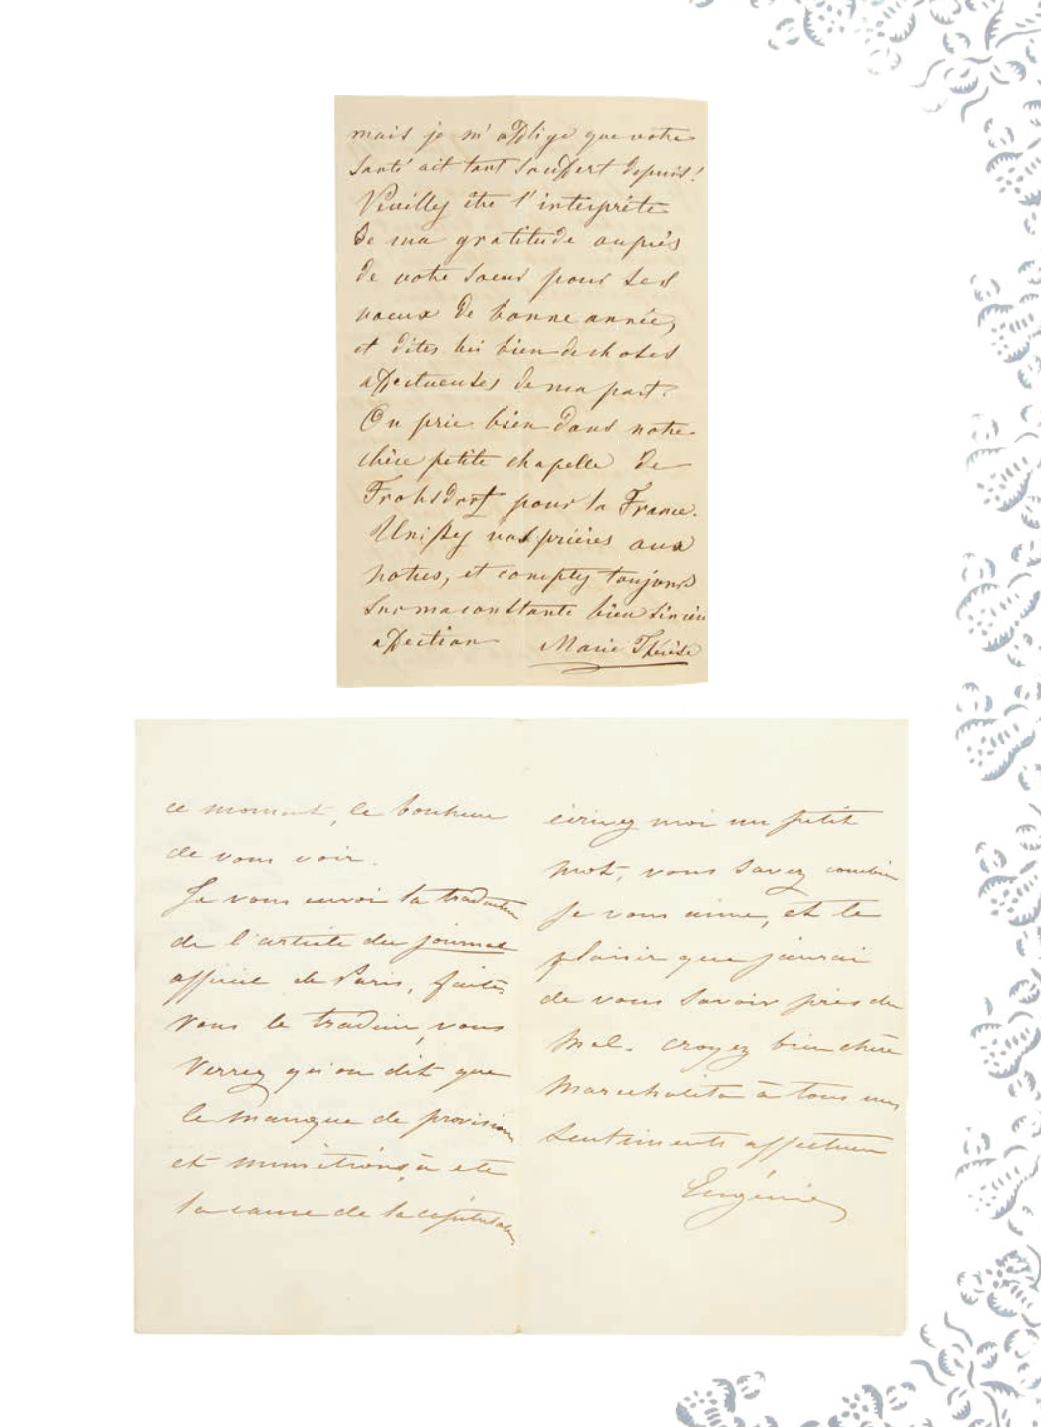 mais je m'afflige que votre
santé ait tant souffert depuis!
Veuillez être l'interprête
de ma gratitude auprès
de votre soeur pour ses
voeux de bonne année,
et dites lui bien des choses
affectueuses de ma part.
On prie bien dans notre
chère petite chapelle de
Frohsdorf pour la France.
Unissez vos prières aux
notres, et comptez toujours
sur ma constante bien sincère
affection Marie Thérèse
ce moment, le bonheur
de vous voir.
Je vous envoi la traduction
de l'article du journal
officiel de Paris, faites
vous le traduire, vous
verrez qu'on dit que
le manque de provisions
et munitions, a ete
la cause de la capitulation
écrivez moi un petit
mot, vous savez combien
je vous aime, et le
plaisir que j'aurai
de vous savoir près de
Mel. croyez bien chère
Marechalita à tous mes
sentiments affectueux
Eugénie